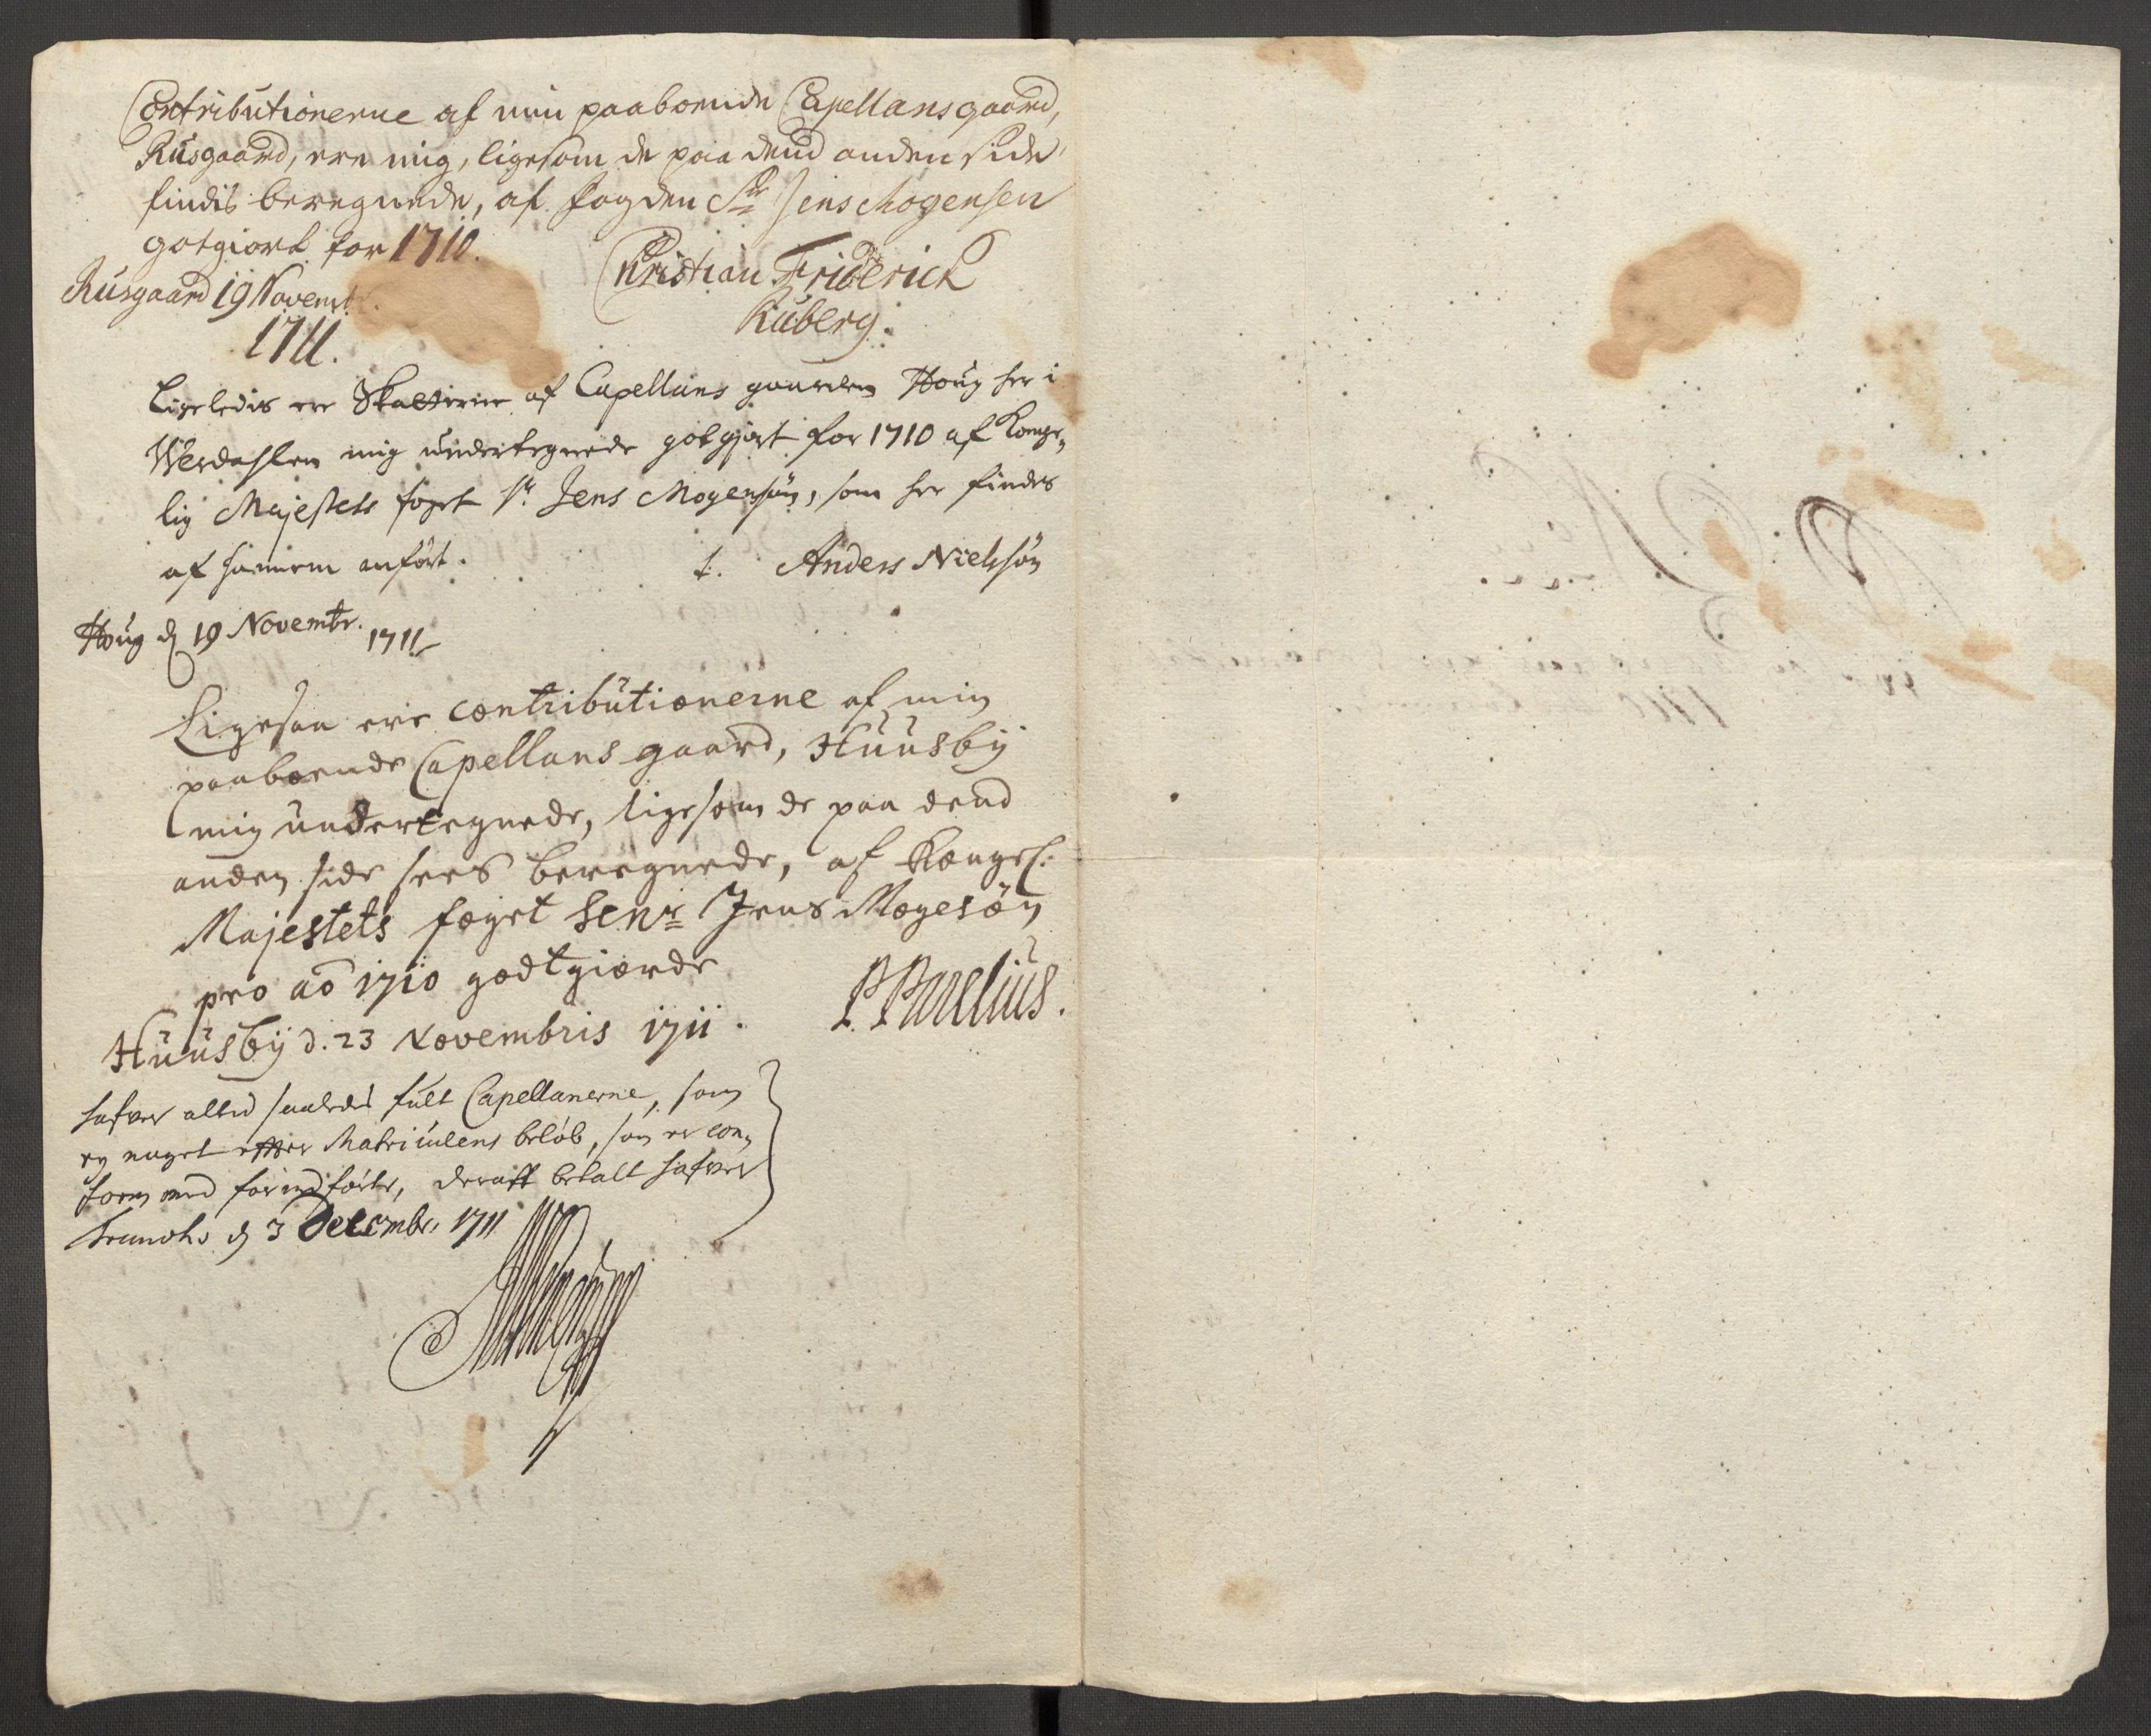 Contributionerne af min paaboende Capellans gaard,
Rusgaard, ere mig, ligesom de paa dend anden side
findis beregnede, af fogden Sr Jens Mogensen
gotgiort for 1710.
Rusgaard 19 Novembr.
1711.
Christian Friderich
Ruberg.
Ligeledis ere Skatterne af Capellans gaarden Houg her i
Werdahlen mig undertegnede gotgiort for 1710 af Konge,,
lig Majestets foget Sr. Jens Mogensøn, som her findes
af hannem anført.
t. Anders Nielsøn
Houg d 19 Novembr.
1711
Ligesaa ere contributionerne af min
paaboende Capellans gaard, Huusbÿ
mig undertegnede, ligesom de paa dend
anden side sees beregnede, af Kongel:
Majestets foget Senr Jens Mogesøn
pro ao 1710 godtgiorde
Huusbÿ d. 23 Novembris 1711.
P. Parelius.
hafver altid saaledes fult Capellanerne, som
ey noget efter Matriculens beløb, som er con,,
form med forindførte, deraff betalt hafver
d 3 Decembr. 1711